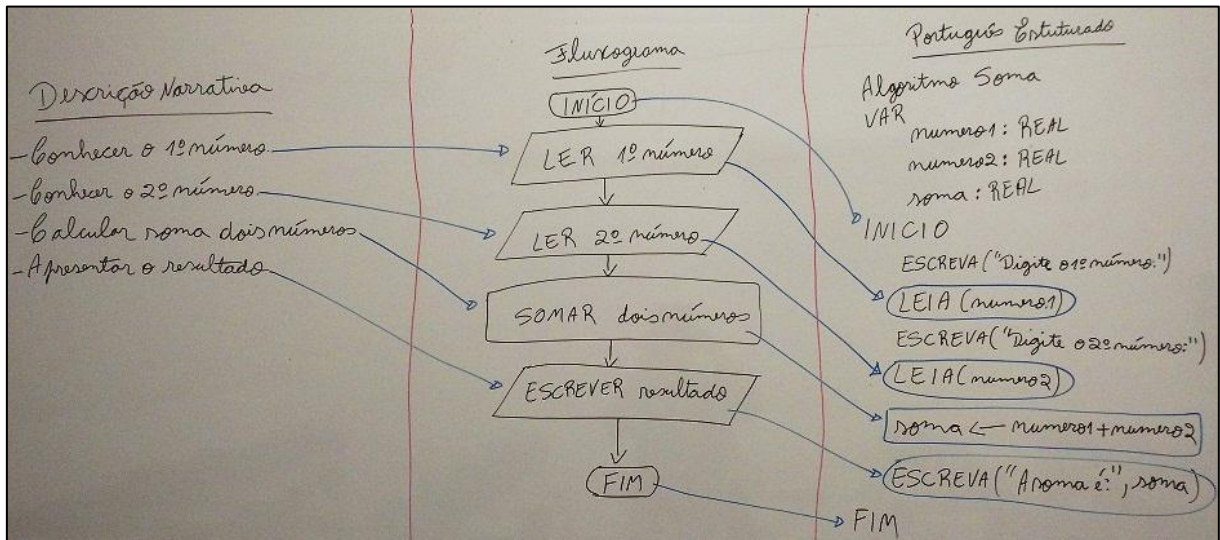 Descrição Narrativa
- Conhecer o 1º número
- Conhecer o 2º número
- Calcular soma dois números
- Apresentar o resultado
Fluxograma
INÍCIO
LER 1º número
LER 2º número
SOMAR dois números
ESCREVER resultado
FIM
Português Estuturado
Algoritmo Soma
VAR
numero1: REAL
numero2: REAL
soma: REAL
INICIO
ESCREVA("Digite o 1º número:")
LEIA(numero1)
ESCREVA("Digite o 2º número:")
LEIA(numero2)
soma ← numero1+numero2
ESCREVA("A soma é:", soma)
FIM